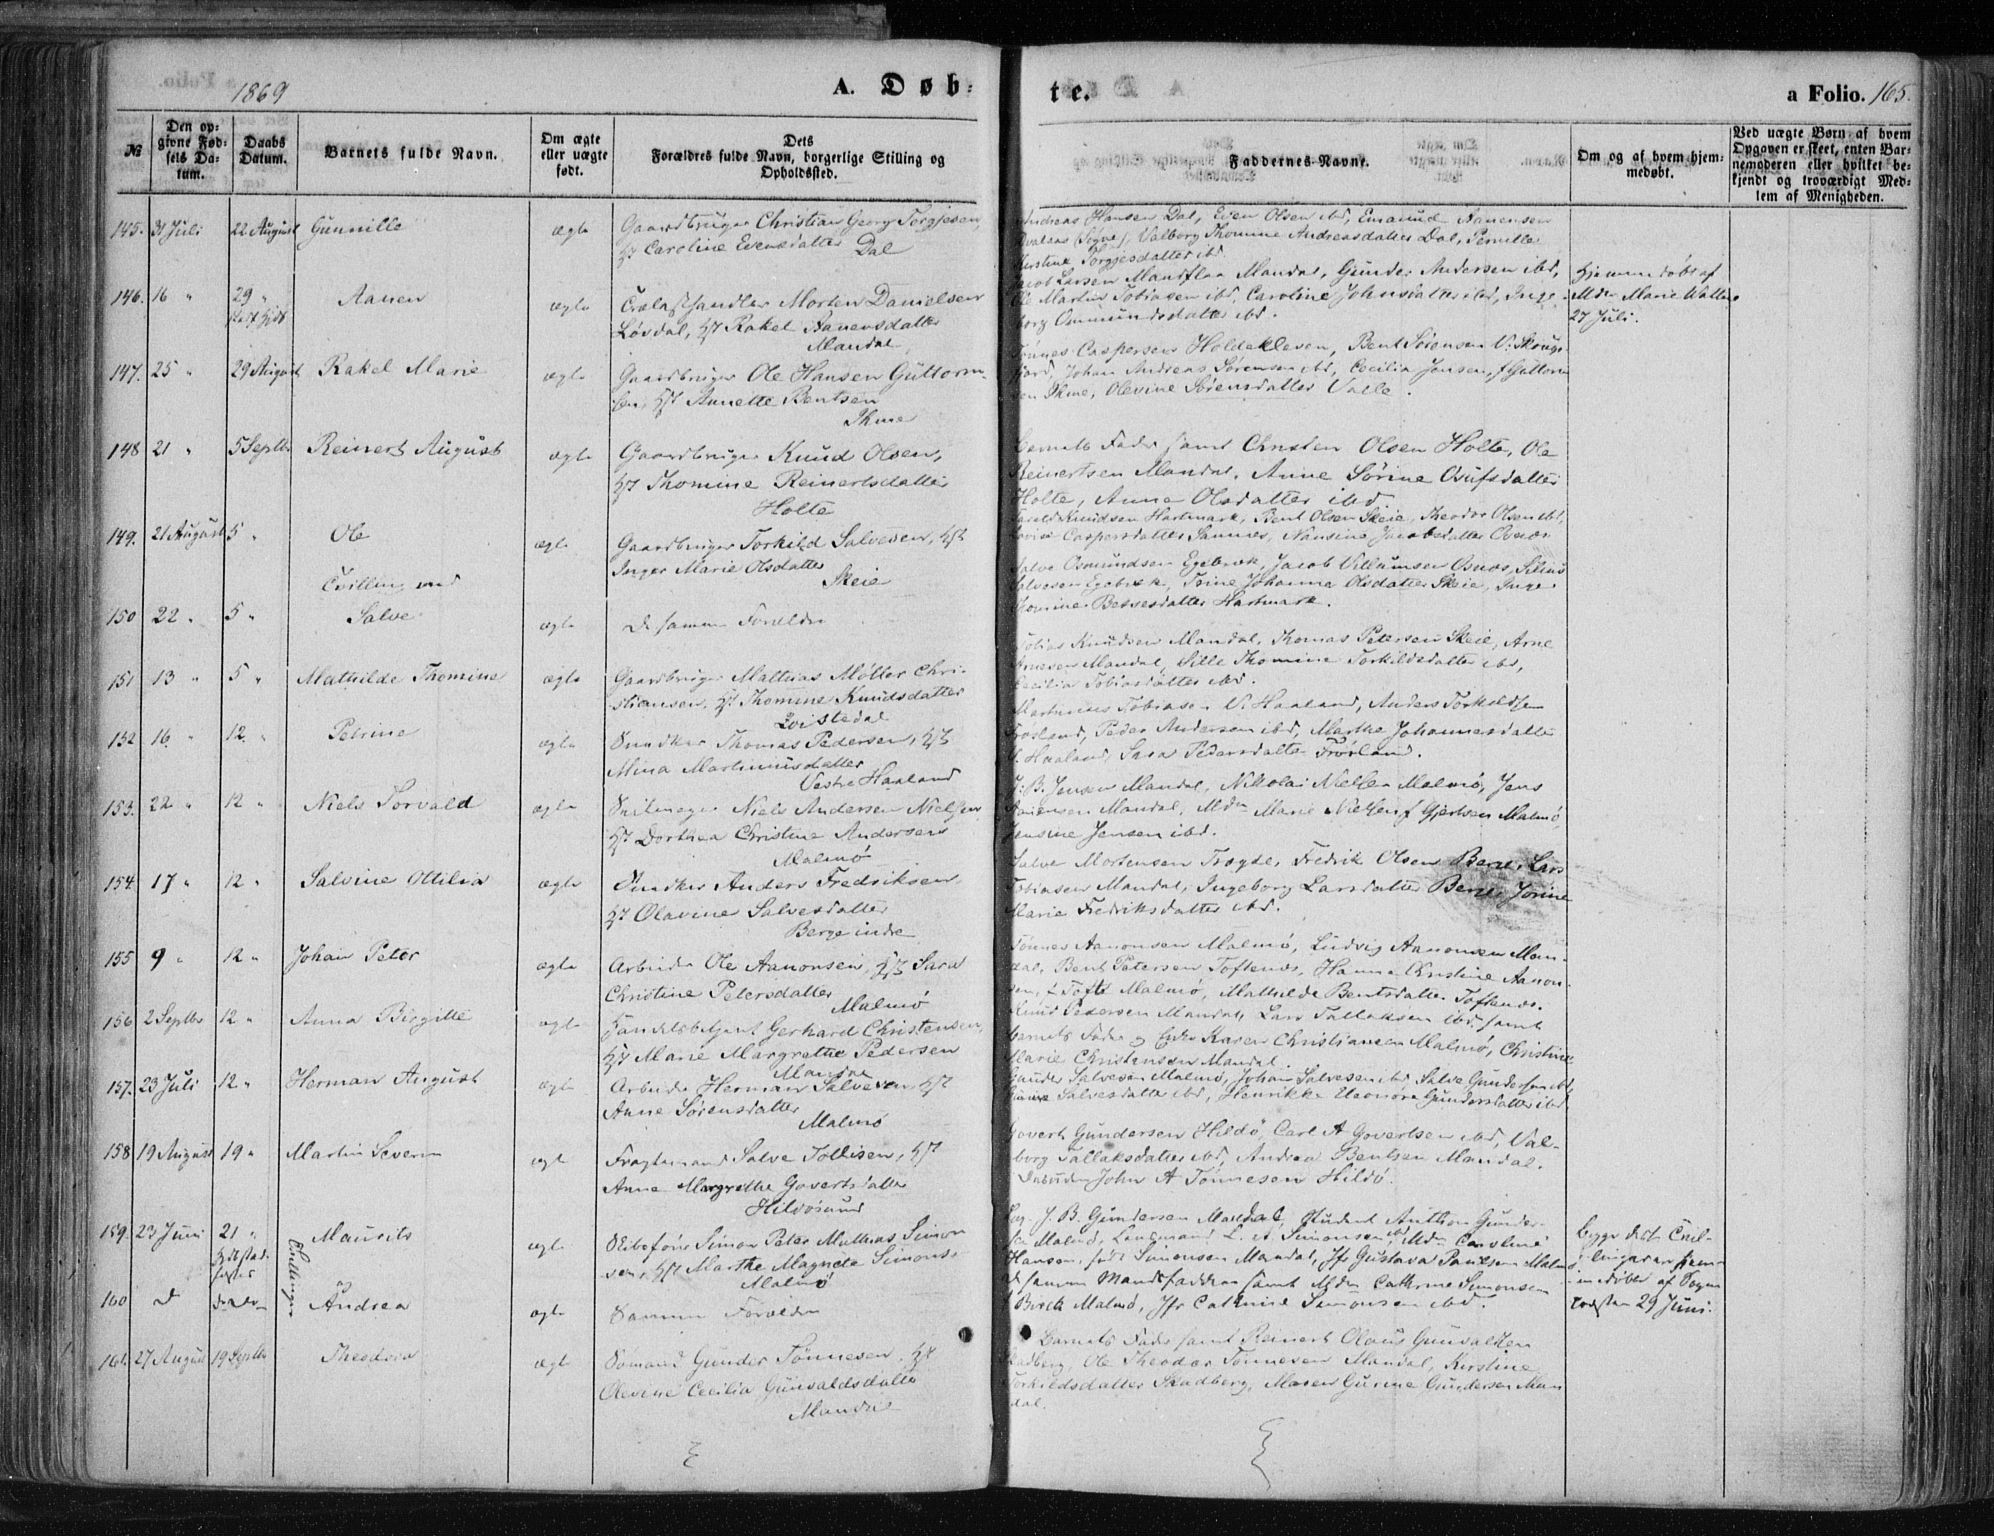 1869
A. Døb-
te.
a Folio. 165.
№
Den op-
givne Fød-
sels Da-
tum.
Daabs
Datum.
Barnets fulde Navn.
Om ægte
eller uægte
født.
Dets
Forældres fulde Navn, borgerlige Stilling og
Opholdssted.
Faddernes Navne.
Om og af hvem hjem-
medøbt.
Ved uægte Børn af hvem
Opgaven er skeet, enten Bar-
nemoderen eller hvilket be-
kjendt og troværdigt Med-
lem af Menigheden.
145. 31 Juli 22 August Gunnille ægte Gaardbruger Christian Georg Torgjesen,
Caroline Evensdatter Dal
Andreas Hansen Dal, Even Olsen ibd, Emanuel Aanensen
Valborg Thomine Andreasdatter Dal, Pernille
Kirstine Torgjesdatter ibd
146. 16 " 29 " Aanen ægte Morten Danielsen
Løvdal, Rakel Aanensdatter
Mandal
Jacob Larsen Mandflaa Mandal, Gunder Andersen ibd,
Ole Martin Tobiasen ibd, Caroline Johnsdatter ibd, Inge-
borg Ommundsdatter ibd.
Hjemmedøbt af
Mdm Marie
27 Juli.
147. 25 " 29 August Rakel Marie ægte Gaardbruger Ole Hansen Guttorm-
sen, Annette Bentsen
Skine
Tønnes Caspersen Holdekleven, Bent Sørensen V: Skouge
Johan Andreas Sørensen ibd, Cecilia Jensen, f Guttorm
sen Skine, Olevine Sørensdatter Valle.
148 21 " 5 Septbr Reinert August ægte Gaardbruger Knud Olsen,
Thomine Reinertsdatter
Holte
Barnets Fader samt Christen Olsen Holte, Ole
Reinertsen Mandal, Anne Sørine Osufsdatter
Holte, Anne Olsdatter ibd
149. 21 August 5 " Ole ægte Gaardbruger Torkild Salvesen,
Inger Marie Olsdatter
Skeie
Knudsen Hartmark, Bent Olsen Skeie, Theodor Olsen ibd,
Lovise Caspersdatter Sannes, Nansine Jacobsdatter Osnes
Tvilling med
Salve Osmundsen Egebræk, Jacob Villumsen Osnes, Silius
Salvesen Egebræk, Tsine Johanna Olsdatter Skeie, Inger
Thomine Hartmark.
150 22 " 5 " Salve ægte De samme Forældre
151 13 " 5 " Mathilde Thomine ægte Gaardbruger Mathias Møller Chri-
stiansen, Thomine Knudsdatter
Tobias Knudsen Mandal, Thomas Petersen Skeie, Arne
Arnesen Mandal, Sille Thomine Torkildsdatter ibd,
Cecilia Tobiasdatter ibd.
152 16 " 12 " Petrine ægte Snedker Thomas Pedersen,
Mina Martiniusdatter
Vestre Haaland
Martinius Tobiasen V. Haaland, Anders Torkeldsen
Frøsland, Peder Andersen ibd, Marthe Johannesdatter
V. Haaland, Sara Pedersdatter Frøsland.
153. 22 " 12 " Niels Torvald ægte Seilmager Niels Andersen Nielsen,
Dorthea Christine Andersen
Malmø
J. B. Jensen Mandal, Nikolai Nielsen Malmø, Jens
Mandal, Mdm Marie Nielsen f Gjertsen Malmø,
Jensine Jensen ibd.
154. 17 " 12 " Salvine Ottilia ægte Snedker Anders Fredriksen,
Olavine Salvesdatter
Berge indre
Salve Mortensen Tregde, Fredrik Olsen Berge, Lars
Tobiasen Mandal, Ingeborg Larsdatter Berge, Jorine
Marie Fredriksdatter ibd.
155 9 " 12 " Johan Peter ægte Arbeider Ole Aanonsen, Sara
Christine Petersdatter
Malmø
Tønnes Aanonsen Malmø, Ludvig Aanonsen Man-
dal, Bent Petersen Toftenes, Hanne Christine Aanon-
sen, f Toft Malmø, Mathilde Bentsdatter Toftenes.
156 2 Septbr 12 " Anna Birgitte ægte Handelsbetjent Gerhard Christensen,
Marie Margrethe Pedersen
Mandal
Knud Pedersen Mandal, Lars Tallaksen ibd, samt
Barnets Fader og Enke Karen Christiansen Malmø, Christine
Marie Christensen Mandal.
157. 23 Juli 12 " Herman August ægte Arbeider Herman Salvesen,
Anne Sørensdatter
Malmø
Gunder Salvesen Malmø, Johan Salvesen ibd, Salve Gundersen ibd,
Salvesdatter ibd, Henrikke Eleonora Gundersdatter ibd.
158 19 August 19 " Martin Severin ægte Fragtemand Salve Tollisen,
Anne Margrethe Govertsdatter
Hilløsund
Govert Gundersen Hildø, Carl A Govertsen ibd, Val-
borg Tallaksdatter ibd, Andrea Bentsen Mandal.
Desuden John A Tønnesen Hildø.
159. 23 Juni 21 " Maurits ægte Skibsfører Simon Peter Mathias Simon-
sen, Marthe Magnete Simons-
Malmø
J. B. Gundersen Mandal, Student Anthon Gunder-
sen Malmø, L. A. Simonsen ibd, Mdm Caroline
Hansen, født Simonsen Mandal, Jfr Gustava Paulsen Malmø
Tvillinger
Begge disse Tvil-
linger ere hjem-
medøbte af Sogne-
præsten 29 Juni.
160 d Andrea ægte Samme Forældre
De samme Mandsfaddere samt Mdm Cathrine Simonsen
f Birch Malmø, Jfr Cathrine Simonsen ibd.
161. 27 August 19 Septbr Theodora ægte Sømand Gunder Tønnesen,
Olevine Cecilia Gunvaldsdatter
Mandal
Barnets Fader samt Reinert Olaus Gunvaldsen
Skadberg, Ole Theodor Tønnesen Mandal, Kirstine
Torkildsdatter Skadberg, Maren Gurine Gundersen Man
dal.